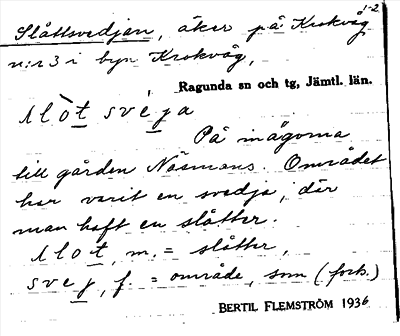 1-2
Slåttsvedjan, åker på Krokvåg
n:r 3 i byn Krokvåg,
Ragunda sn och tg, Jämtl. län.
ʃlòt svéja
På inägorna
till gården Näsmans. Området
har varit en svedja, där
man haft en slåtter.
ʃlot, m. = slåtter,
svej, f. = område, som (forts.)
BERTIL FLEMSTRÖM 1936